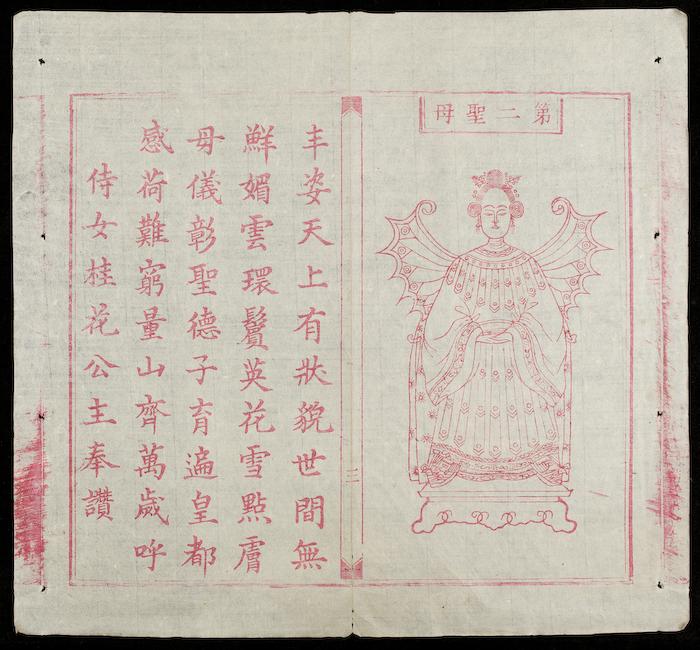 第二聖母
三
丰姿天上有狀貌世間無
鮮媚雲環鬓英花雪點膚
母儀彰聖德子育遍皇都
感荷難窮量山齊萬歲呼
侍女桂花公主奉讚